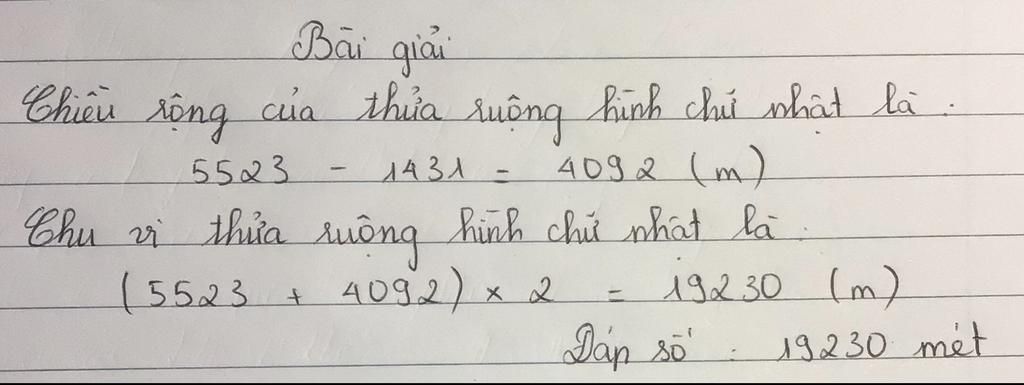 Bài giải
Chiều rộng của thửa ruộng hình chữ nhật là :
5523 - 1431 = 4092 (m)
Chu vi thửa ruộng hình chữ nhật là :
(5523 + 4092) × 2 = 19230 (m)
Đáp số : 19230 mét